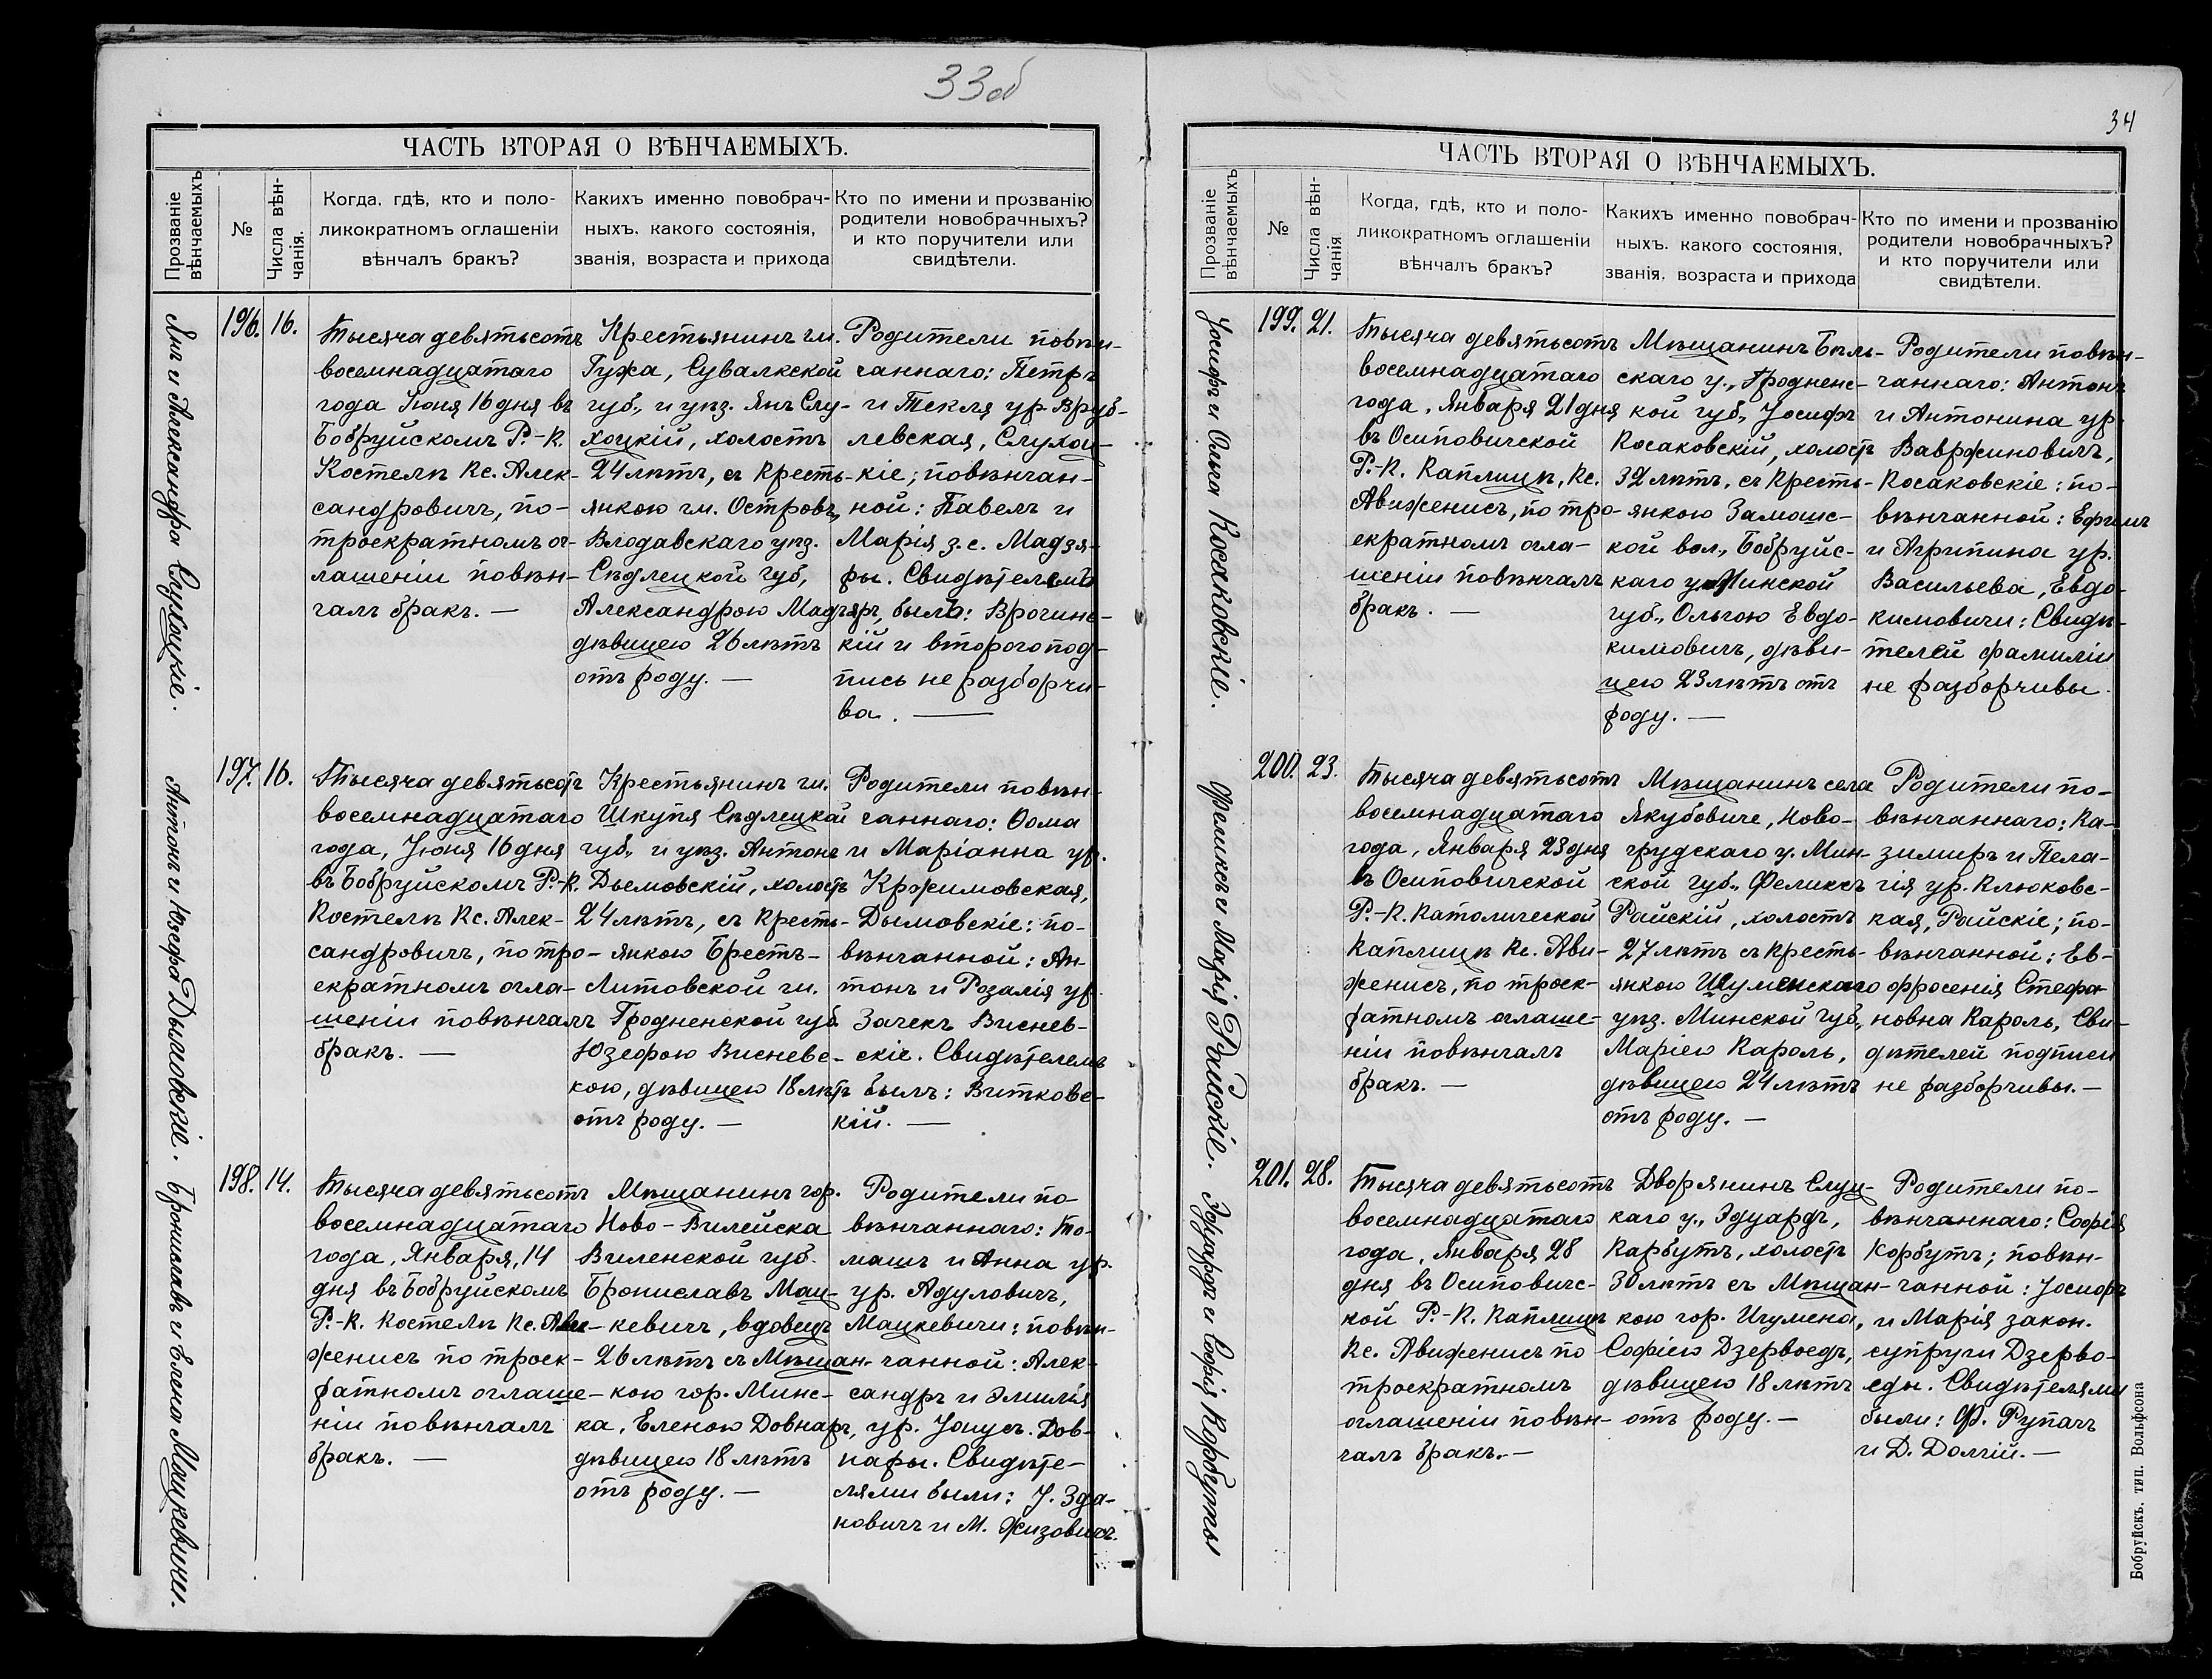 33об
ЧАСТЬ ВТОРАЯ О ВѢНЧАЕМЫХЪ.
Прозваніе
вѣнчаемыхъ
№
Числа вѣн-
чанія.
Когда, гдѣ, кто и поло-
ликократномъ оглашеніи
вѣнчалъ бракъ?
Какихъ именно повобрач-
ныхъ, какого состоянія,
званія, возраста и прихода
Кто по имени и прозванію
родители новобрачныхъ?
и кто поручители или
свидѣтели.
Янъ и Александра Слухоцкіе.
196. 16.
Тысяча девятьсотъ
восемнадцатаго
года Іюня 16 дня въ
Бобруйскомъ Р.-К.
Костелѣ Кс. Алек-
сандровичъ, по-
троекратномъ ог-
лашеніи повѣн-
чалъ бракъ. —
Крестьянинъ гм.
Гужа, Сувалкской
губ., и уѣз. Янъ Слу-
хоцкій, холостъ
24 лѣтъ, съ кресть-
янкою гм. Островъ,
Влодавскаго уѣз.
Сѣдлецкой губ,
Александрою Мадзяръ,
дѣвицею 26 лѣтъ
отъ роду. —
Родители повѣн-
чаннаго: Петръ
и Текля ур. Вруб-
левская, Слухоц-
кіе; повѣнчан-
ной: Павелъ и
Марія з. с. Мадзя-
ры. Свидѣтелемъ
былъ: Врочинс-
кій и второго под-
пись не разборчи-
ва. —
Антонъ и Юзефа Дымовскіе.
197. 16.
Тысяча девятьсотъ
восемнадцатаго
года, Іюня 16 дня
въ Бобруйскомъ Р.-К.
Костелѣ Кс. Алек-
сандровичъ, по тро-
екратномъ огла-
шеніи повѣнчалъ
бракъ. —
Крестьянинъ гм.
Шкупя Сѣдлецкой
губ., и уѣз. Антонъ
Дымовскій, холостъ
24 лѣтъ, съ кресть-
янкою Брестъ-
Литовской гм.
Гродненской губ.
Юзефою Висневс-
кою, дѣвицею 18 лѣтъ
отъ роду. —
Родители повѣн-
чаннаго: Ѳома
и Маріанна ур.
Кржимовская,
Дымовскіе: по-
вѣнчанной: Ан-
тонъ и Розалія ур.
Зачекъ Виснев-
скіе. Свидѣтелемъ
былъ: Витковс-
кій. —
Брониславъ и Елена Мацкевичи.
198. 14.
Тысяча девятьсотъ
восемнадцатаго
года, Января, 14
дня въ Бобруйскомъ
Р.-К. Костелѣ Кс. Ави-
женисъ по троек-
ратномъ оглаше-
ніи повѣнчалъ
бракъ. —
Мѣщанинъ гор.
Ново-Вилейска
Виленской губ.
Брониславъ Мац-
кевичъ, вдовецъ
26 лѣтъ съ Мѣщан-
кою гор. Минс-
ка, Еленою Довнаръ,
дѣвицею 18 лѣтъ
отъ роду. —
Родители по-
вѣнчаннаго: То-
машъ и Анна ур.
ур. Адуловичъ,
Мацкевичи: повѣн-
чанной: Алек-
сандръ и Эмилія
ур. Іоцусъ. Дов-
нары. Свидѣте-
лями были: І. Зда-
новичъ и М. Жизовичъ.
34
ЧАСТЬ ВТОРАЯ О ВѢНЧАЕМЫХЪ.
Прозваніе
вѣнчаемыхъ
№
Числа вѣн-
чанія
Когда, гдѣ, кто и поло-
ликократномъ оглашеніи
вѣнчалъ бракъ?
Какихъ именно повобрач-
ныхъ. какого состоянія,
званія, возраста и прихода
Кто по имени и прозванію
родители новобрачныхъ?
и кто поручители или
свидѣтели.
Іосифъ и Ольга Косаковскіе.
199. 21.
Тысяча девятьсотъ
восемнадцатаго
года, Января 21 дня
въ Осиповичской
Р.-К. Каплицѣ, Кс.
Авиженисъ, по тро-
екратномъ огла-
шеніи повѣнчалъ
бракъ. —
Мѣщанинъ Бѣль-
скаго у., Гродненс-
кой губ., Іосифъ
Косаковскій, холостъ
32 лѣтъ, съ кресть-
янкою Замошс-
кой вол., Бобруйс-
каго у. Минской
губ., Ольгою Евдо-
кимовичъ, дѣви-
цею 23 лѣтъ отъ
роду. —
Родители повѣн-
чаннаго: Антонъ
и Антонина ур.
Вавржиновичъ,
Косаковскіе: по-
вѣнчанной: Ефимъ
и Агрипина ур.
Васильева, Евдо-
кимовичи: Свидѣ-
телей фамиліи
не разборчивы.
Феликсъ и Марія Райскіе.
200. 23.
Тысяча девятьсотъ
восемнадцатаго
года, Января 23 дня
въ Осиповичской
Р.-К. Католической
Каплицѣ Кс. Ави-
женисъ, по троек-
ратномъ оглаше-
ніи повѣнчалъ
бракъ. —
Мѣщанинъ села
Якубовиче, Ново-
грудскаго у. Мин-
ской губ., Феликсъ
Райскій, холостъ
27 лѣтъ съ кресть-
янкою Игуменскаго
уѣз. Минской губ.,
Маріею Кароль,
дѣвицею 24 лѣтъ
отъ роду. —
Родители по-
вѣнчаннаго: Ка-
зимиръ и Пела-
гія ур. Клюковс-
кая, Райскіе; по-
вѣнчанной: Ев-
фросенія Стефа-
новна Кароль, Сви-
дѣтелей подписи
не разборчивы. —
Эдуардъ и Софія Корбуты
201. 28.
Тысяча девятьсотъ
восемнадцатаго
года, Января 28
дня въ Осиповичс-
кой Р.-К. Каплицѣ
Кс. Авиженисъ по
троекратномъ
оглашеніи повѣн-
чалъ бракъ. —
Дворянинъ Слуц-
каго у., Эдуардъ,
Карбутъ, холостъ
30 лѣтъ съ Мѣщан-
кою гор. Игумена,
Софіею Дзервоедъ,
дѣвицею 18 лѣтъ
отъ роду. —
Родители по-
вѣнчаннаго: Софія
Корбутъ; повѣн-
чанной: Іосифъ
и Марія закон.
супруги Дзерво-
еды. Свидѣтелями
были: Ф. Рупачъ
и Д. Долгій. —
Бобруйскъ, тип. Вольфсона